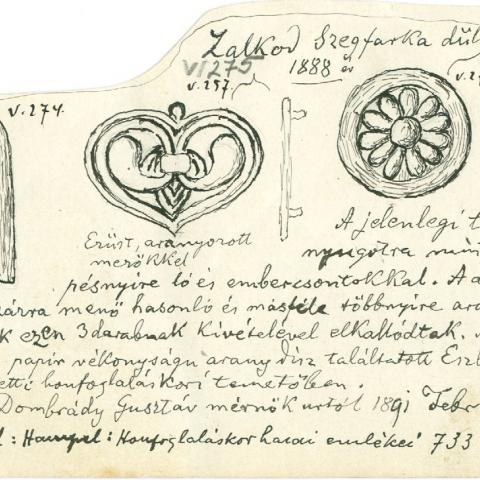 Zalkod Szegfarka dűl
VI 275
1888 év
v. 274.
v. 257.
Ezüst, aranyozott
mezőkkel
A jelenlegi t
nyugotra mint
pésnyire ló és embercsontokkal. A
zárra menő hasonló és másféle többnyire ara
k ezen 3 darabnak kivételével elkallódtak.
papir vékonyságu arany dísz találtatott Eszl
etti honfoglaláskori temetőben.
Dombrády Gusztáv mérnök urtól 1891 Febr
: Hampel: Honfoglaláskor hazai emlékei 733